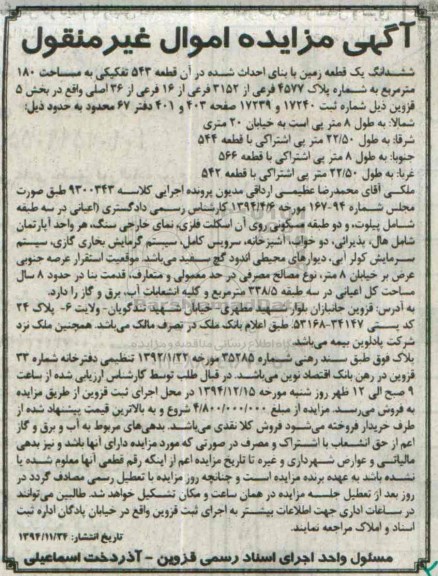 آگهی مزایده اموال غیرمنقول
ششدانگ یک قطعه زمین با بنای احداث شده در آن قطعه ۵۴۳ تفکیکی به مساحت ۱۸۰
مترمربع به شماره پلاک ۴۵۷۷ فرعی از ۳۱۵۲ فرعی از ۱۶ فرعی از ۳۶ اصلی واقع در بخش ۵
قزوین ذیل شماره ثبت ۱۷۲۴۰ و ۱۷۲۳۹ صفحه ۴۰۳ و ۴۰۱ دفتر ۶۷ محدود به حدود ذیل:
شمالا: به طول ۸ متر پی است به خیابان ۲۰ متری
شرقا: به طول ۲۲/۵۰ متر پی اشتراکی با قطعه ۵۴۴
جنوبا: به طول ۸ متر پی اشتراکی با قطعه ۵۶۶
غربا: به طول ۲۲/۵۰ متر پی اشتراکی با قطعه ۵۴۲
ملکی آقای محمدرضا عظیمی ارداقی مدیون پرونده اجرایی کلاسه ۹۳۰۰۳۴۳ طبق صورت
مجلس شماره ۹۴-۱۶۷ مورخه ۱۳۹۴/۴/۶ کارشناس رسمی دادگستری (اعیانی در سه طبقه
شامل پیلوت، و دو طبقه مسکونی روی آن اسکلت فلزی، نمای خارجی سنگ، هر واحد آپارتمان
شامل هال، پذیرائی، دو خواب، آشپزخانه، سرویس کامل، سیستم گرمایش بخاری گازی، سیستم
سرمایش کولر آبی، دیوارهای محیطی اندود گچ سفید می‌باشد. موقعیت استقرار عرصه جنوبی
عرض بر خیابان ۸ متر، نوع مصالح مصرفی در حد معمولی و متعارف، قدمت بنا در حدود ۸ سال
مساحت کل اعیانی در سه طبقه ۳۳۸/۵ مترمربع و کلیه انشعابات آب، برق و گاز را دارد.
به آدرس: قزوین جانبازان بلوار شهید مطهری- خیابان شهید تندگویان- ولایت ۶- پلاک ۲۴
کد پستی ۳۴۱۴۷-۵۳۱۶۸ طبق اعلام بانک ملک در تصرف مالک می‌باشد. همچنین ملک نزد
شرکت پادلوین بیمه می‌باشد.
پلاک فوق طبق سند رهنی شماره ۳۵۲۸۵ مورخه ۱۳۹۲/۱/۲۲ تنظیمی دفترخانه شماره ۳۳
قزوین در رهن بانک اقتصاد نوین می‌باشد. در قبال طلب توسط کارشناس ارزیابی شده از ساعت
۹ صبح الی ۱۲ ظهر روز شنبه مورخه ۱۳۹۴/۱۲/۱۵ در محل اجرای ثبت قزوین از طریق مزایده
به فروش می‌رسد. مزایده از مبلغ ۴/۸۰۰/۰۰۰/۰۰۰ شروع و به بالاترین قیمت پیشنهاد شده از
طرف خریدار فروخته می‌شود فروش کلا نقدی می‌باشد. بدهی‌های مربوطه به آب و برق و گاز
اعم از حق انشعاب یا اشتراک و مصرف در صورتی که مورد مزایده دارای آنها باشد و نیز بدهی
مالیاتی و عوارض شهرداری و غیره تا تاریخ مزایده اعم از اینکه رقم قطعی آنها معلوم شده یا
نشده باشد به عهده برنده مزایده است و چنانچه روز مزایده با تعطیل رسمی مصادف گردد در
روز بعد از تعطیل جلسه مزایده در همان ساعت و مکان تشکیل خواهد شد. طالبین می‌توانند
در ساعات اداری جهت اطلاعات بیشتر به اجرای ثبت قزوین واقع در خیابان پادگان اداره ثبت
اسناد و املاک مراجعه نمایند.
تاریخ انتشار: ۱۳۹۴/۱۱/۲۴
مسئول واحد اجرای اسناد رسمی قزوین - آذردخت اسماعیلی